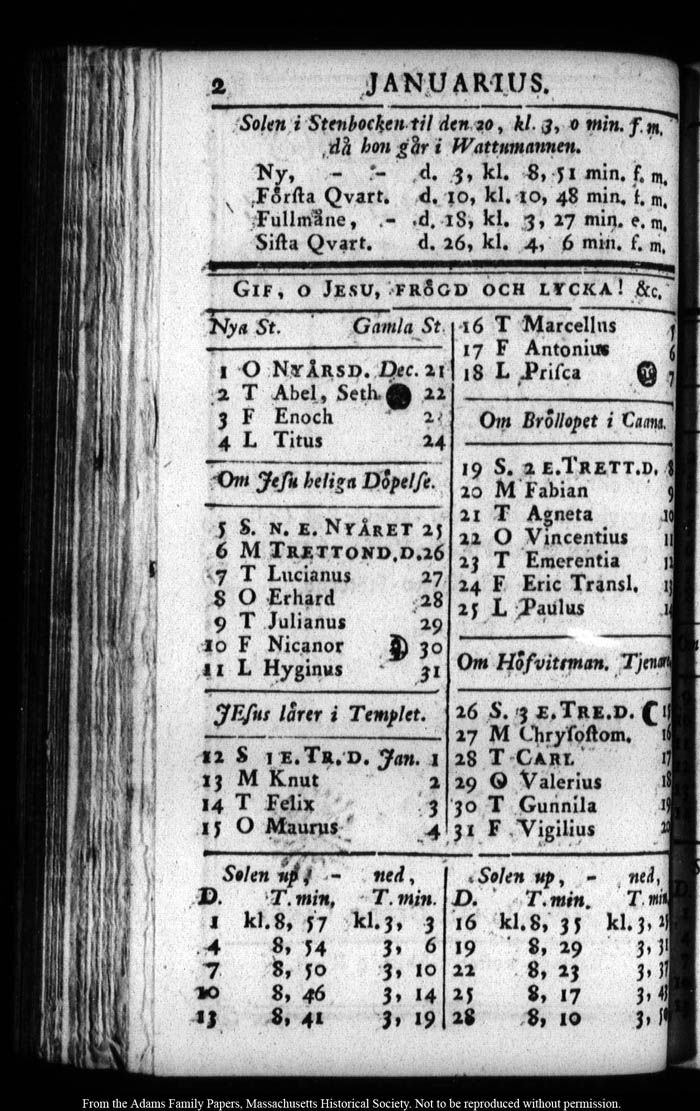 2 JANUARIUS.
Solen i Stenbocken til den 20, kl. 3, 0 min. f. m.
då hon går i Wattumannen.
Ny, - - d. 3, kl. 8, 51 min. f. m.
Fårſta Qvart. d. 10, kl. 10, 48 min. f. m.
Fullmåne, - d. 18, kl. 3, 27 min. e. m.
Siſta Qvart. d. 26, kl. 4, 6 min. f. m.
GIF, O JESU, FRÖGD OCH LYCKA! &c.
Nya St. Gamla St.
1 O NYÅRSD. Dec. 21
2 T Abel, Seth 22
3 F Enoch
4 L Titus 24
Om Jeſu heliga Döpelſe.
5 S. N. E. NYÅRET 25
6 M TRETTOND.D.26
7 T Lucianus 27
8 O Erhard 28
9 T Julianus 29
10 F Nicanor 30
11 L Hyginus 31
JEſus lårer i Templet.
12 S 1 E. TR. D. Jan. 1
13 M Knut 2
14 T Felix 3
15 O Maurus 4
16 T Marcellus
17 F Antonius 6
18 L Priſca 7
Om Bröllopet i Caana.
19 S. 2 E. TRETT.D. 8
20 M Fabian 9
21 T Agneta 10
22 O Vincentius 11
23 T Emerentia 12
24 F Eric Transl. 13
25 L Paulus 14
Om Höfvitsman. Tjenare
26 S. 3 E. TRE. D. 15
27 M Chryſoſtom. 16
28 T CARL 17
29 O Valerius 18
30 T Gunnila 19
31 F Vigilius 20
Solen up, - ned,
D. T. min, T. min.
1 kl. 8, 57 kl. 3, 3
4 8, 54 3, 6
7 8, 50 3, 10
10 8, 46 3, 14
13 8, 41 3, 19
Solen up, - ned,
D. T. min. T. min.
16 kl. 8, 35 kl. 3, 25
19 8, 29 3, 31
22 8, 23 3, 37
25 8, 17 3, 43
28 8, 10 3, 50
From the Adams Family Papers, Massachusetts Historical Society. Not to be reproduced without permission.